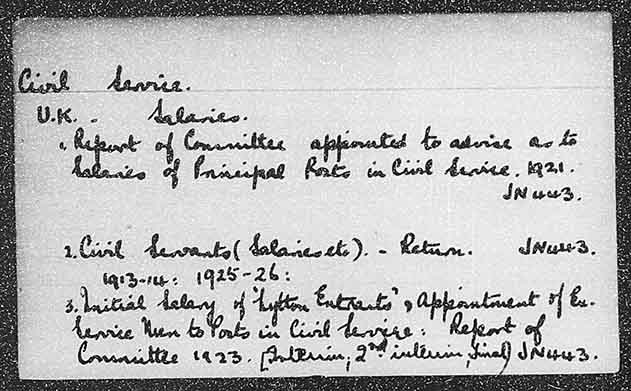 Civil Service.
U.K. - Salaries.
1. Report of Committee appointed to advise as to
Salaries of Principal Posts in Civil Service. 1921.
JN443.
2. Civil Servants (Salaries etc). - Return. JN443.
1913-14: 1925-26:
3. Initial Salary of "Lytton Entrants" & Appointment of Ex-
Service Men to Posts in Civil Service: Report of
Committee 1923. (Interim, 2nd interim, final) JN443.